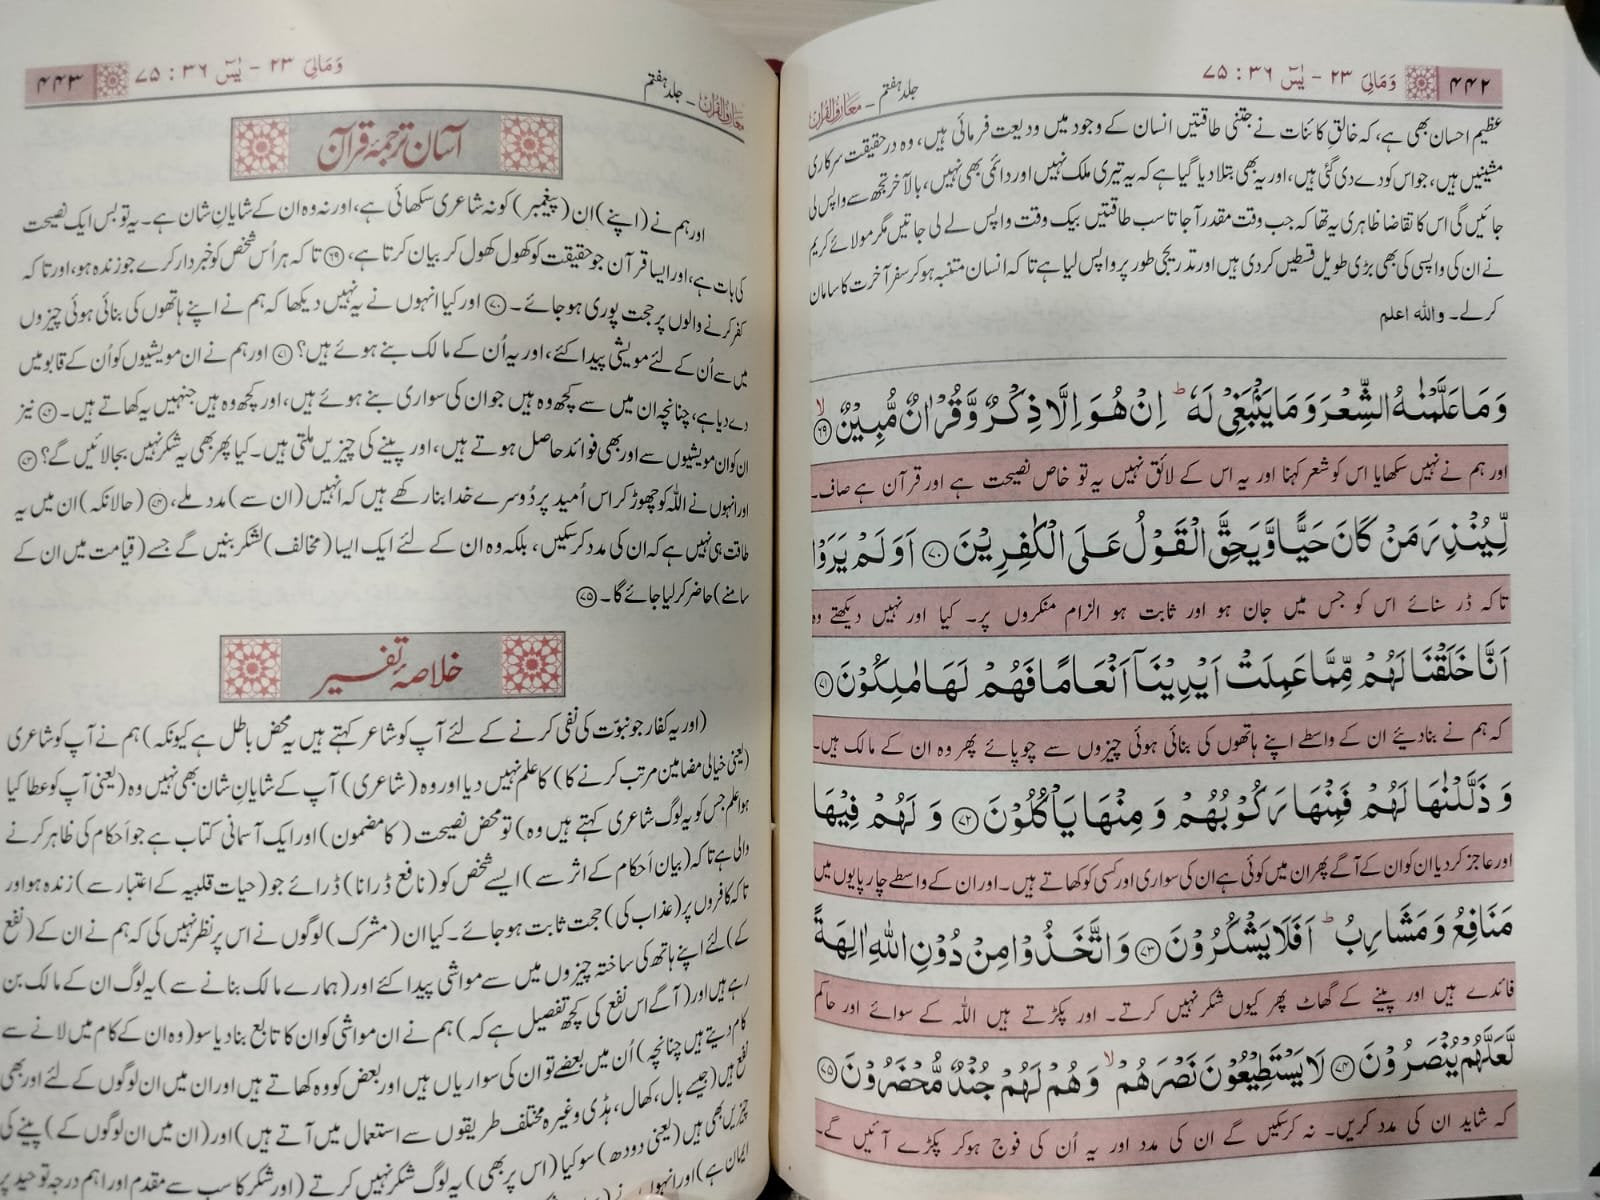 ۴۴۲
وَمَالِیَ ۲۳ - یٰسٓ ۳۶ : ۷۵
معارف القرآن - جلد ہفتم
عظیم احسان بھی ہے، کہ خالقِ کائنات نے جتنی طاقتیں انسان کے وجود میں ودیعت فرمائی ہیں، وہ درحقیقت سرکاری
مشینیں ہیں، جو اس کو دے دی گئی ہیں، اور یہ بھی بتلا دیا گیا ہے کہ یہ تیری ملک نہیں اور دائمی بھی نہیں، بالآخر تجھ سے واپس لی
جائیں گی اس کا تقاضا ظاہری یہ تھا کہ جب وقت مقدر آجاتا سب طاقتیں بیک وقت واپس لے لی جاتیں مگر مولائے کریم
نے ان کی واپسی کی بھی بڑی طویل قسطیں کر دی ہیں اور تدریجی طور پر واپس لیا ہے تاکہ انسان متنبہ ہو کر سفر آخرت کا سامان
کرلے۔ واللہ اعلم
وَمَا عَلَّمْنٰهُ الشِّعْرَ وَمَا يَنْۢبَغِيْ لَهٗ ؕ اِنْ هُوَ اِلَّا ذِكْرٌ وَّقُرْاٰنٌ مُّبِيْنٌ ۙ﴿۶۹﴾
اور ہم نے نہیں سکھایا اس کو شعر کہنا اور یہ اس کے لائق نہیں یہ تو خاص نصیحت ہے اور قرآن ہے صاف۔
لِّيُنْذِرَ مَنْ كَانَ حَيًّا وَّيَحِقَّ الْقَوْلُ عَلَى الْكٰفِرِيْنَ ﴿۷۰﴾ اَوَلَمْ يَرَوْا
تاکہ ڈر سنائے اس کو جس میں جان ہو اور ثابت ہو الزام منکروں پر۔ کیا اور نہیں دیکھتے وہ
اَنَّا خَلَقْنَا لَهُمْ مِّمَّا عَمِلَتْ اَيْدِيْنَآ اَنْعَامًا فَهُمْ لَهَا مٰلِكُوْنَ ﴿۷۱﴾
کہ ہم نے بنا دیئے ان کے واسطے اپنے ہاتھوں کی بنائی ہوئی چیزوں سے چوپائے پھر وہ ان کے مالک ہیں۔
وَ ذَلَّلْنٰهَا لَهُمْ فَمِنْهَا رَكُوْبُهُمْ وَمِنْهَا يَاْكُلُوْنَ ﴿۷۲﴾ وَ لَهُمْ فِيْهَا
اور عاجز کر دیا ان کو ان کے آگے پھر ان میں کوئی ہے ان کی سواری اور کسی کو کھاتے ہیں۔ اور ان کے واسطے چارپایوں میں
مَنَافِعُ وَمَشَارِبُ ؕ اَفَلَا يَشْكُرُوْنَ ﴿۷۳﴾ وَاتَّخَذُوْا مِنْ دُوْنِ اللّٰهِ اٰلِهَةً
فائدے ہیں اور پینے کے گھاٹ پھر کیوں شکر نہیں کرتے۔ اور پکڑتے ہیں اللہ کے سوائے اور حاکم
لَّعَلَّهُمْ يُنْصَرُوْنَ ﴿۷۴﴾ لَا يَسْتَطِيْعُوْنَ نَصْرَهُمْ ۙ وَهُمْ لَهُمْ جُنْدٌ مُّحْضَرُوْنَ ﴿۷۵﴾
کہ شاید ان کی مدد کریں۔ نہ کر سکیں گے ان کی مدد اور یہ اُن کی فوج ہو کر پکڑے آئیں گے۔
۴۴۳
وَمَالِیَ ۲۳ - یٰسٓ ۳۶ : ۷۵
معارف القرآن - جلد ہفتم
آسان ترجمۂ قرآن
اور ہم نے (اپنے) ان (پیغمبر) کو نہ شاعری سکھائی ہے، اور نہ وہ ان کے شایانِ شان ہے۔ یہ تو بس ایک نصیحت
کی بات ہے، اور ایسا قرآن جو حقیقت کو کھول کھول کر بیان کرتا ہے، ﴿۶۹﴾ تاکہ ہر اُس شخص کو خبردار کرے جو زندہ ہو، اور تاکہ
کفر کرنے والوں پر حجت پوری ہو جائے۔ ﴿۷۰﴾ اور کیا انہوں نے یہ نہیں دیکھا کہ ہم نے اپنے ہاتھوں کی بنائی ہوئی چیزوں
میں سے اُن کے لئے مویشی پیدا کئے، اور یہ اُن کے مالک بنے ہوئے ہیں؟ ﴿۷۱﴾ اور ہم نے ان مویشیوں کو اُن کے قابو میں
دے دیا ہے، چنانچہ ان میں سے کچھ وہ ہیں جو ان کی سواری بنے ہوئے ہیں، اور کچھ وہ ہیں جنہیں یہ کھاتے ہیں۔ ﴿۷۲﴾ نیز
ان کو ان مویشیوں سے اور بھی فوائد حاصل ہوتے ہیں، اور پینے کی چیزیں ملتی ہیں۔ کیا پھر بھی یہ شکر نہیں بجا لائیں گے؟ ﴿۷۳﴾
اور انہوں نے اللہ کو چھوڑ کر اس اُمید پر دُوسرے خدا بنا رکھے ہیں کہ انہیں (ان سے) مدد ملے، ﴿۷۴﴾ (حالانکہ) ان میں یہ
طاقت ہی نہیں ہے کہ ان کی مدد کر سکیں، بلکہ وہ ان کے لئے ایک ایسا (مخالف) لشکر بنیں گے جسے (قیامت میں ان کے
سامنے) حاضر کر لیا جائے گا۔ ﴿۷۵﴾
خلاصۂ تفسیر
(اور یہ کفار جو نبوّت کی نفی کرنے کے لئے آپ کو شاعر کہتے ہیں یہ محض باطل ہے کیونکہ) ہم نے آپ کو شاعری
(یعنی خیالی مضامین مرتب کرنے کا) کا علم نہیں دیا اور وہ (شاعری) آپ کے شایانِ شان بھی نہیں وہ (یعنی آپ کو عطا کیا
ہوا علم جس کو یہ لوگ شاعری کہتے ہیں وہ) تو محض نصیحت (کا مضمون) اور ایک آسمانی کتاب ہے جو اَحکام کی ظاہر کرنے
والی ہے تاکہ (بیان اَحکام کے اثر سے) ایسے شخص کو (نافع ڈرانا) ڈرائے جو (حیات قلبیہ کے اعتبار سے) زندہ ہو اور
تاکہ کافروں پر (عذاب کی) حجت ثابت ہو جائے۔ کیا ان (مشرک) لوگوں نے اس پر نظر نہیں کی کہ ہم نے ان کے (نفع
کے) لئے اپنے ہاتھ کی ساختہ چیزوں میں سے مواشی پیدا کئے اور (ہمارے مالک بنانے سے) یہ لوگ ان کے مالک بن
رہے ہیں اور (آگے اس نفع کی کچھ تفصیل ہے کہ) ہم نے ان مواشی کو ان کا تابع بنا دیا سو (وہ ان کے کام میں لانے سے
کام دیتے ہیں چنانچہ) اُن میں بعضے تو ان کی سواریاں ہیں اور بعض کو وہ کھاتے ہیں اور ان میں ان لوگوں کے لئے اور بھی
نفع ہیں (جیسے بال، کھال، ہڈی وغیرہ مختلف طریقوں سے استعمال میں آتے ہیں) اور (ان میں ان لوگوں کے) پینے کی
چیزیں بھی ہیں (یعنی دودھ) سو کیا (اس پر بھی) یہ لوگ شکر نہیں کرتے (اور شکر کا سب سے مقدم اور اہم درجہ توحید پر
ایمان ہے) اور انہوں نے